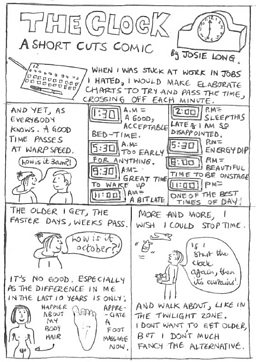 THE CLOCK
A SHORT CUTS COMIC
by JOSIE LONG.
WHEN I WAS STUCK AT WORK IN JOBS
I HATED, I WOULD MAKE ELABORATE
CHARTS TO TRY AND PASS THE TIME,
CROSSING OFF EACH MINUTE.
AND YET, AS
EVERYBODY
KNOWS. A GOOD
TIME PASSES
AT WARP SPEED.
HOW IS IT 3AM?!
1:30 A.M =
A GOOD,
ACCEPTABLE
BED-TIME.
5:30 A.M:
TOO EARLY
FOR ANYTHING.
9:30 AM:
GREAT TIME
TO WAKE UP
11:00 AM =
A BIT LATE
2:00 P.M =
SLEEP THIS
LATE & I AM SO
DISAPPOINTED.
5:30 PM =
ENERGY DIP
8:00 PM =
BEAUTIFUL
TIME TO BE ONSTAGE
11:00 PM =
ONE OF THE BEST
TIMES OF DAY!
THE OLDER I GET, THE
FASTER DAYS, WEEKS PASS.
HOW IS IT
OCTOBER?!
IT'S NO GOOD. ESPECIALLY
AS THE DIFFERENCE IN ME
IN THE LAST 10 YEARS IS ONLY:
HAPPIER
ABOUT
MY
BODY
HAIR
APPRE-
CIATE
A
FOOT
MASSAGE
NOW.
MORE AND MORE,
WISH I COULD STOP TIME.
IF I
SHUT THE
CLOCK
AGAIN, THEN
IT'S CURTAINS!
AND WALK ABOUT, LIKE IN
THE TWILIGHT ZONE.
I DON'T WANT TO GET OLDER,
BUT I DON'T MUCH
FANCY THE ALTERNATIVE.